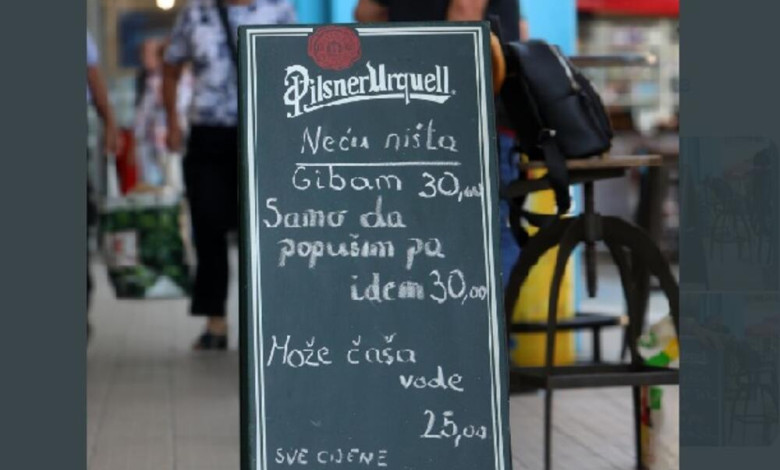 Pilsner Urquell
Neću ništa
Gibam 30,00
Samo da
popušim pa
idem 30,00
Može čaša
vode
25,00
SVE CIJENE